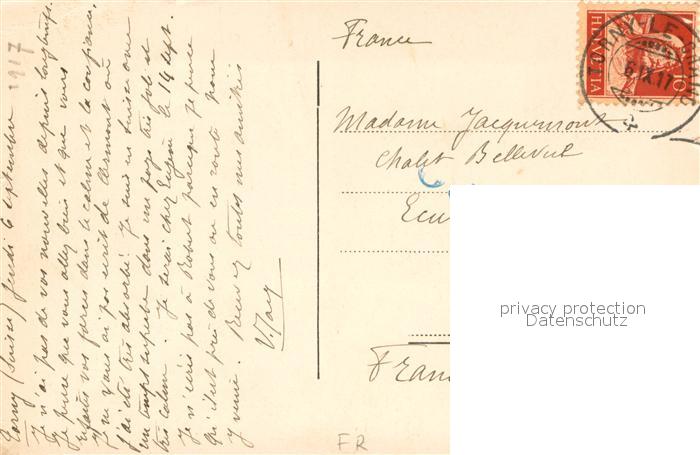 Torny (Suisse) Jeudi 6 septembre 1917
Je n'ai pas de vos nouvelles depuis longtemps.
Je pense que vous allez bien et que vous
vos forces dans le calme et la confiance.
Je ne vous ai pas écrit de Clermont où
j'ai été très absorbé. Je suis en Suisse avec
un temps superbe dans un pays très joli et
très calme. Je serai chez Eugène le 14 sept.
Je n'écris pas à Robert parceque je pense
qu'il est près de vous ou en route pour
y venir. Recevez toutes mes amitiés
France
Madame Jacquemont
Chalet Bellevue
Ecu
Fran
FR
HELVETIA
10
TORNY-LE-GRAND
6.IX.17
privacy protection
Datenschutz